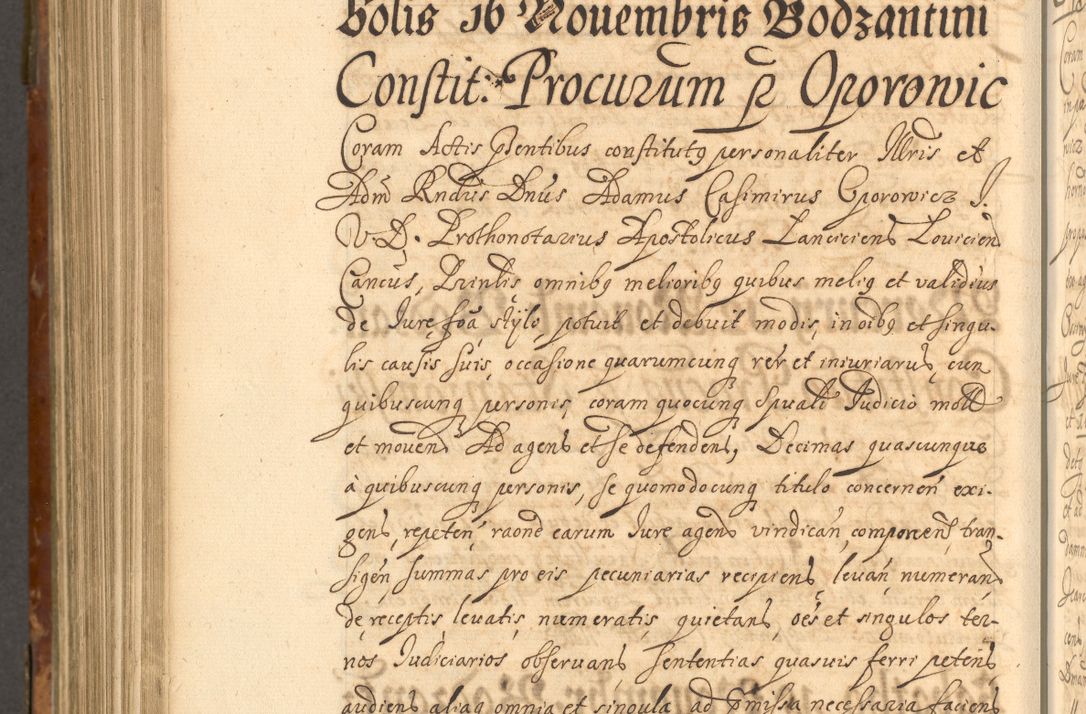 bolis 16 Nouembris Bodzantini
Constit: Procurum p Oporowic
Coram Actis pntibus constitutq personaliter Illris et
Adm Rndus Dnus Adamus Casimirus Oporowicz J.
V. D. Prothonotarius Apostolicus Lanciciens Louicien
Cancus, omnibq melioribq quibus meliq et validius
de Jure, foa stylo potuit et debuit modis, in oibq et singu-
lis causis suis, occasione quarumcunq rer et iniuriarū, cum
quibuscunq personis, coram quocunq Spuali Judicio mott
et mouen Ad agens et se defendens, Decimas quascunque
à quibuscunq personis, se quomodocunq titulo concernen exi-
gens, repeten, raond earum Jure agens vindican, componen, tran-
sigen, summas pro eis pecuniarias recipiens leuan, numeran,
de receptis leuatis, numeratis, quietans, oes et singulos ter-
nos Judiciarios obseruans, sententias quasuis ferri petens,
audiens aliaq omnia et singula ad pmissa necessaria faciens